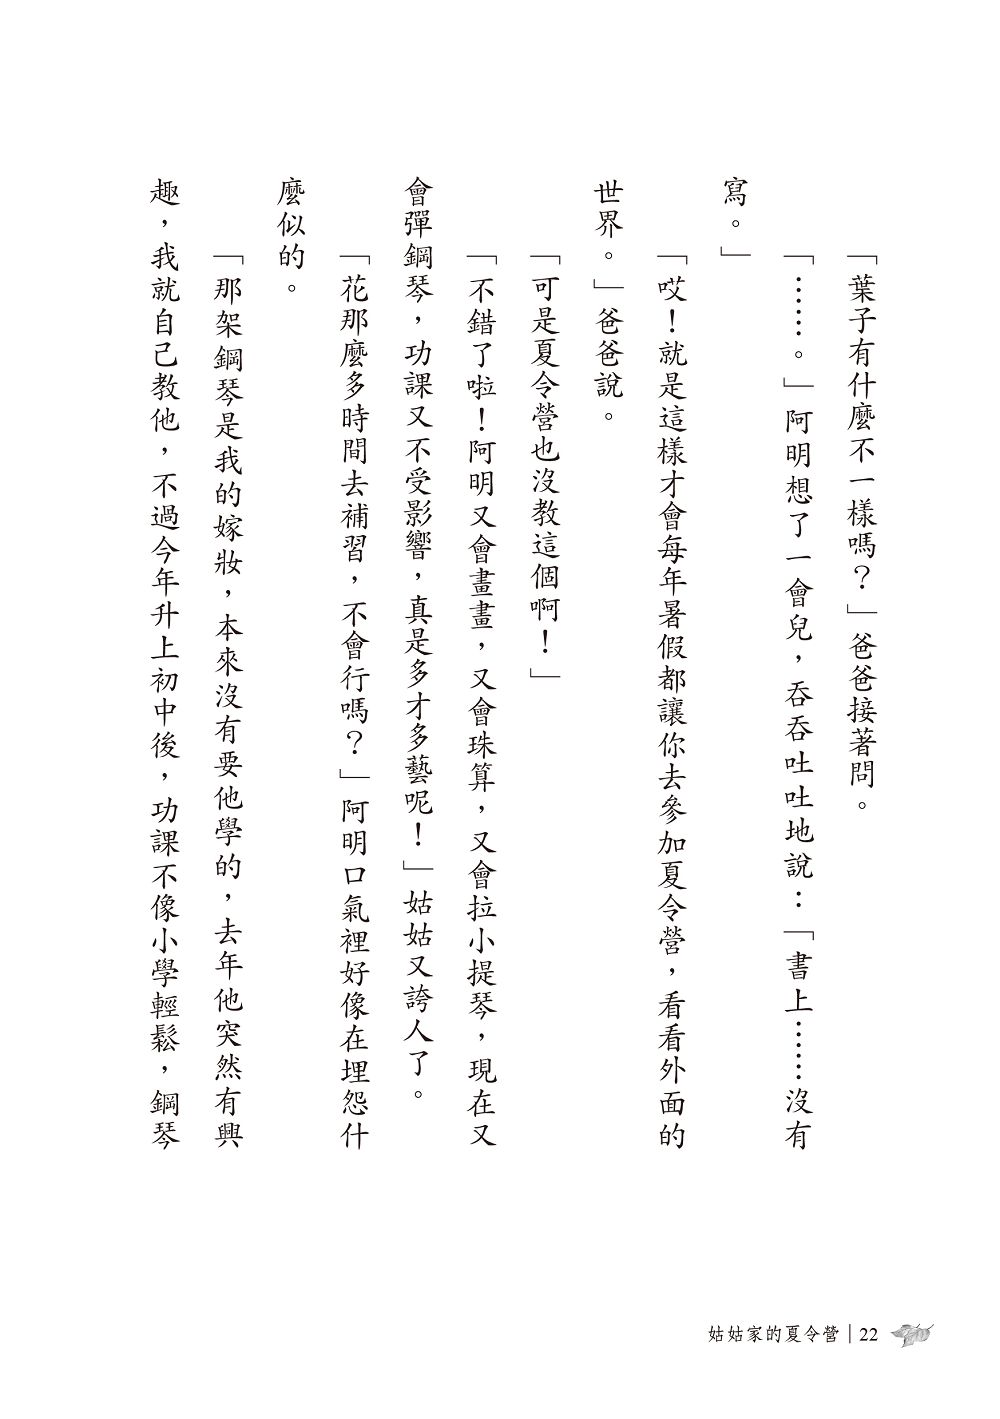 「葉子有什麼不一樣嗎？」爸爸接著問。
「……。」阿明想了一會兒，吞吞吐吐地說：「書上……沒有
寫。」
「哎！就是這樣才會每年暑假都讓你去參加夏令營，看看外面的
世界。」爸爸說。
「可是夏令營也沒教這個啊！」
「不錯了啦！阿明又會畫畫，又會珠算，又會拉小提琴，現在又
會彈鋼琴，功課又不受影響，真是多才多藝呢！」姑姑又誇人了。
「花那麼多時間去補習，不會行嗎？」阿明口氣裡好像在埋怨什
麼似的。
「那架鋼琴是我的嫁妝，本來沒有要他學的，去年他突然有興
趣，我就自己教他，不過今年升上初中後，功課不像小學輕鬆，鋼琴
姑姑家的夏令營｜22